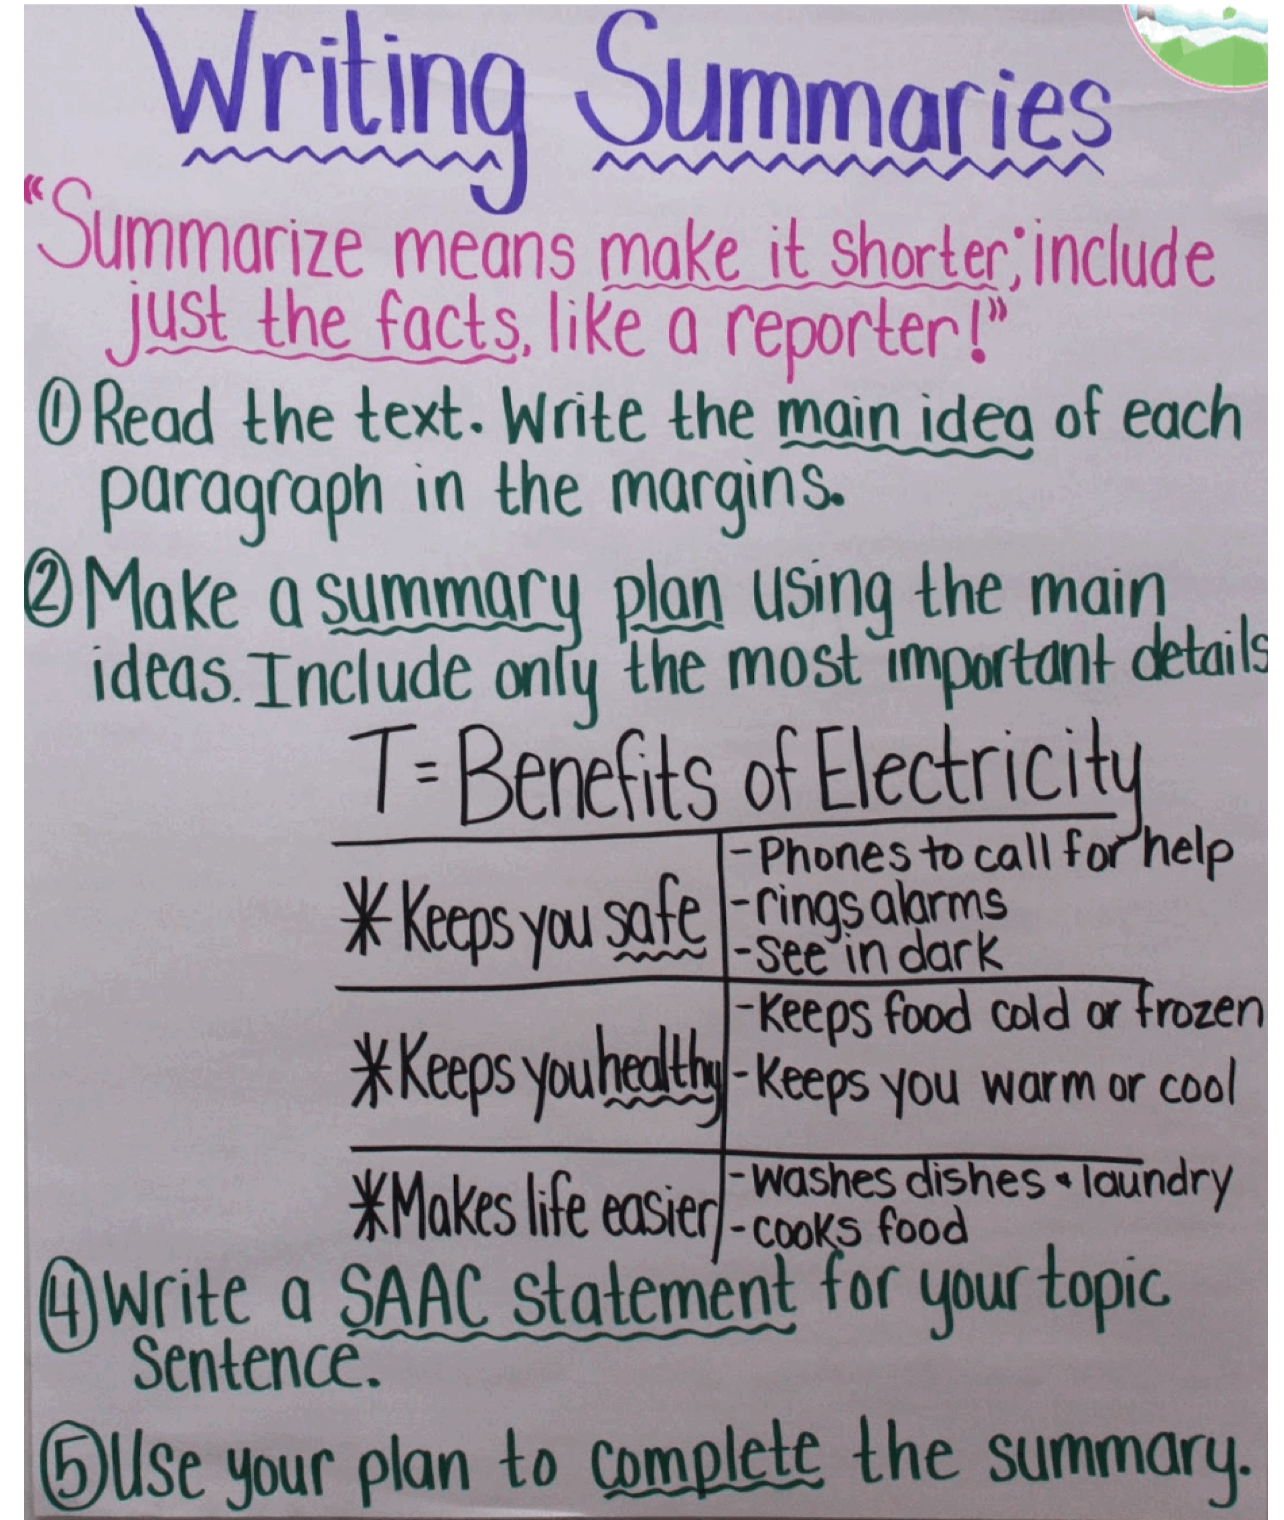 Writing Summaries
"Summarize means make it shorter; include
just the facts, like a reporter!"
① Read the text. Write the main idea of each
paragraph in the margins.
② Make a summary plan using the main
ideas. Include only the most important details
T = Benefits of Electricity
* Keeps you safe
- Phones to call for help
- rings alarms
- see in dark
* Keeps you healthy
- Keeps food cold or frozen
- Keeps you warm or cool
* Makes life easier
- washes dishes + laundry
- cooks food
④ Write a SAAC statement for your topic
Sentence.
⑤ Use your plan to complete the summary.